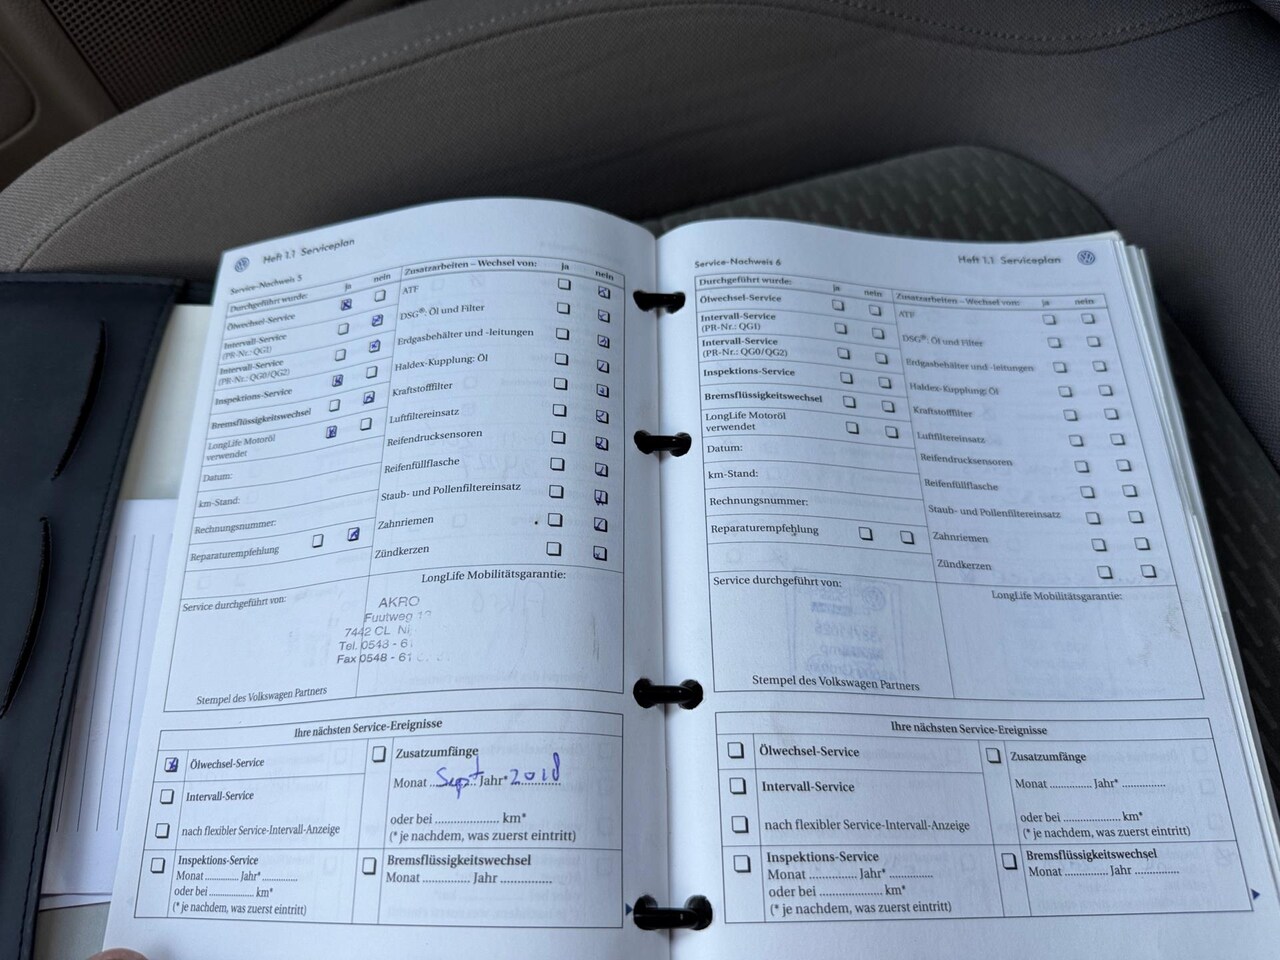 Heft 1.1 Serviceplan
Service-Nachweis 5
Durchgeführt wurde: ja nein
Ölwechsel-Service
Intervall-Service
(PR-Nr.: QGI)
Intervall-Service
(PR-Nr.: QG0/QG2)
Inspektions-Service
Bremsflüssigkeitswechsel
LongLife Motoröl
verwendet
Datum:
km-Stand:
Rechnungsnummer:
Reparaturempfehlung
Zusatzarbeiten – Wechsel von: ja nein
ATF
DSG®: Öl und Filter
Erdgasbehälter und -leitungen
Haldex-Kupplung: Öl
Kraftstofffilter
Luftfiltereinsatz
Reifendrucksensoren
Reifenfüllflasche
Staub- und Pollenfiltereinsatz
Zahnriemen
Zündkerzen
Service durchgeführt von:
LongLife Mobilitätsgarantie:
AKRO
Fuutweg
7442 CL
Tel. 0548 - 6
Fax 0548 - 61
Stempel des Volkswagen Partners
Ihre nächsten Service-Ereignisse
Ölwechsel-Service
Intervall-Service
nach flexibler Service-Intervall-Anzeige
Zusatzumfänge
Monat Sept Jahr* 2018
oder bei .................... km*
(* je nachdem, was zuerst eintritt)
Inspektions-Service
Monat ............ Jahr* ............
oder bei ............... km*
(* je nachdem, was zuerst eintritt)
Bremsflüssigkeitswechsel
Monat ............ Jahr ...............
Service-Nachweis 6
Heft 1.1 Serviceplan
Durchgeführt wurde: ja nein
Ölwechsel-Service
Intervall-Service
(PR-Nr.: QGI)
Intervall-Service
(PR-Nr.: QG0/QG2)
Inspektions-Service
Bremsflüssigkeitswechsel
LongLife Motoröl
verwendet
Datum:
km-Stand:
Rechnungsnummer:
Reparaturempfehlung
Zusatzarbeiten – Wechsel von: ja nein
ATF
DSG®: Öl und Filter
Erdgasbehälter und -leitungen
Haldex-Kupplung: Öl
Kraftstofffilter
Luftfiltereinsatz
Reifendrucksensoren
Reifenfüllflasche
Staub- und Pollenfiltereinsatz
Zahnriemen
Zündkerzen
Service durchgeführt von:
LongLife Mobilitätsgarantie:
Stempel des Volkswagen Partners
Ihre nächsten Service-Ereignisse
Ölwechsel-Service
Intervall-Service
nach flexibler Service-Intervall-Anzeige
Zusatzumfänge
Monat ............... Jahr* ...............
oder bei .................... km*
(* je nachdem, was zuerst eintritt)
Inspektions-Service
Monat ............ Jahr* ............
oder bei .................... km*
(* je nachdem, was zuerst eintritt)
Bremsflüssigkeitswechsel
Monat ............ Jahr ...............